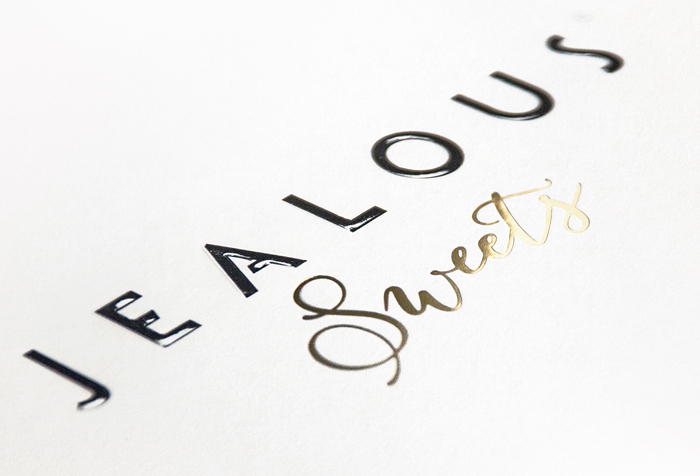 JEALOUS
Sweets